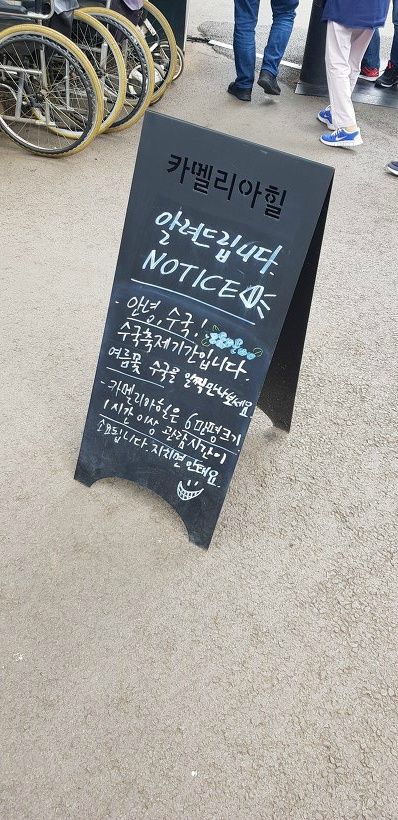 카멜리아힐
알려드립니다.
NOTICE
- 안녕, 수국!
수국축제기간입니다.
여름꽃 수국을 일찍만나보세요
- 카멜리아힐은 6만평크기
1시간이상 관람시간이
소요됩니다. 지치면안돼요.